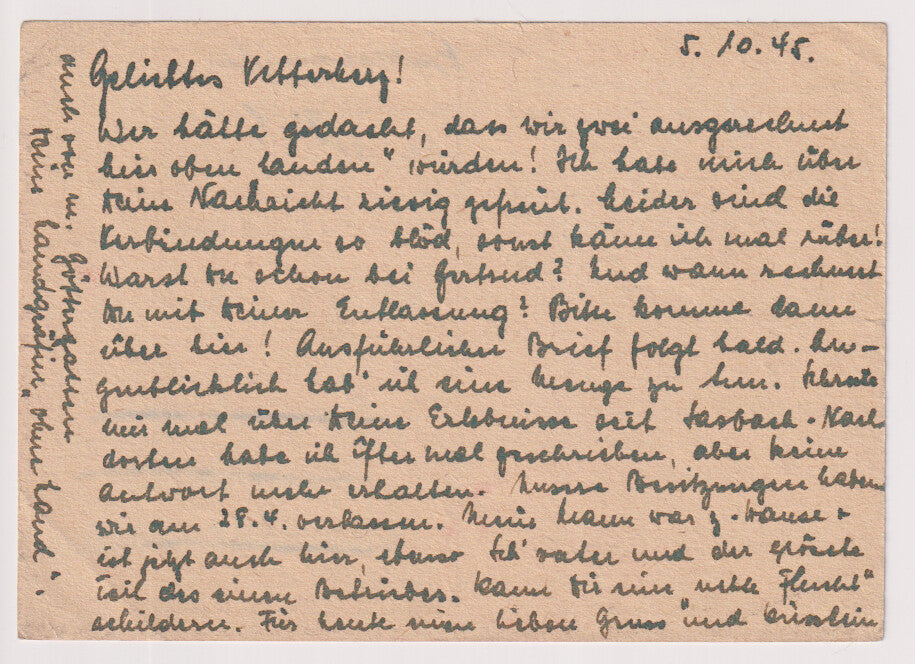 5. 10. 45.
Geliebtes Vetterherz!
Wer hätte gedacht, dass wir zwei ausgerechnet
hier oben landen" würden! Ich habe mich über
Deine Nachricht riesig gefreut. Leider sind die
Verbindungen so blöd, sonst käme ich mal rüber!
Warst Du schon bei Gertrud? Und wann rechnest
Du mit Deiner Entlassung? Bitte komme dann
über hier! Ausführlicher Brief folgt bald. Au-
genblicklich hab' ich eine Menge zu tun. Schreibe
mir mal über Deine Erlebnisse seit Sasbach. Nach
dorten habe ich öfter mal geschrieben, aber keine
Antwort mehr erhalten. Unsere Besitzungen haben
wir am 28.4. verlassen. Mein Mann war z. Hause +
ist jetzt auch hier, ebenso Sch'vater und der grösste
Teil des Betriebes. Kann Dir eine "nette Flucht"
schildern. Für heute einen lieben Gruss und Küsslein
auch von m. Göttergatten
Deine Landgräfin "ohne Land".